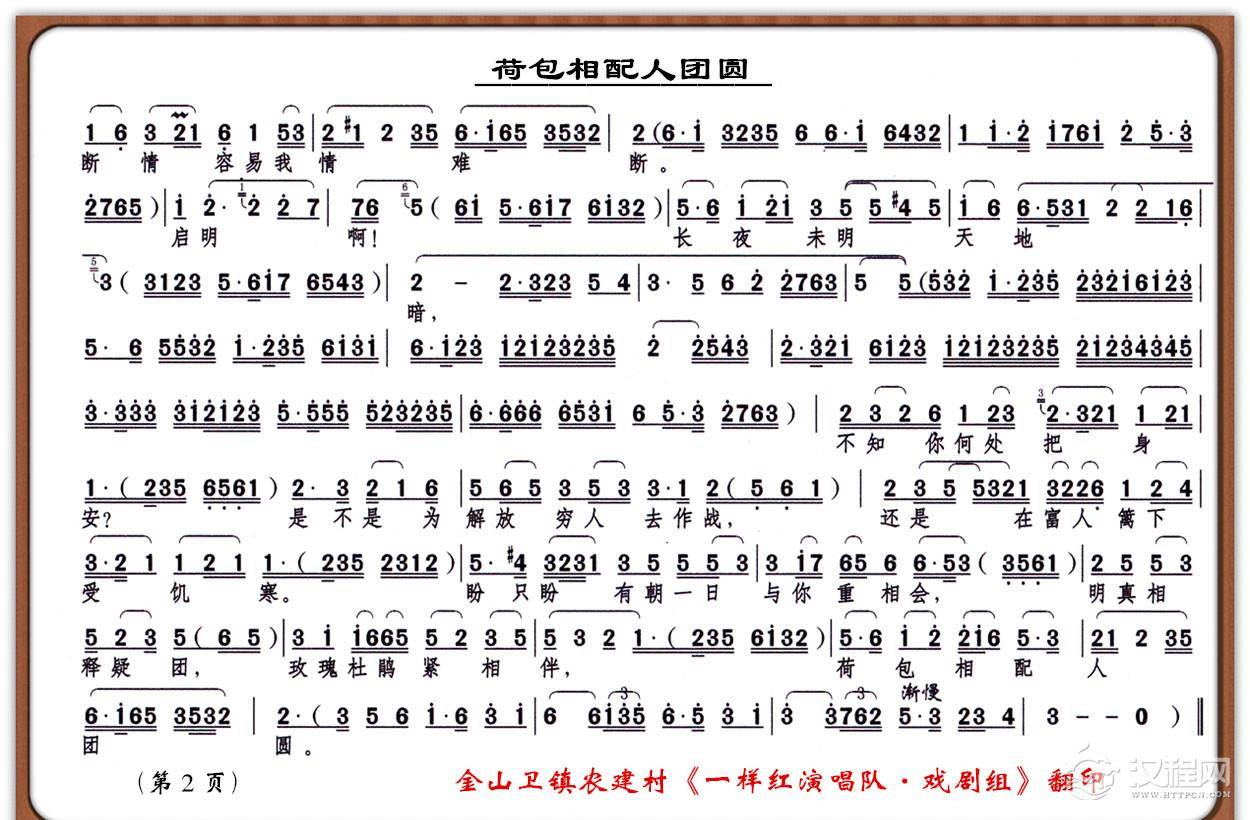 荷包相配人团圆
1 6 3 21 6 1 53 | 2 #1 2 35 6·165 3532 | 2 (6·1 3235 6 6·1 6432 | 1 1·2 1761 2 5·3
断 情 容易我 情 难 断。
2765 ) | 1 2· 2 2 7 | 76 5 ( 61 5·617 6132 ) | 5·6 1 21 3 5 5 #4 5 | 1 6 6·531 2 2 16
启明 啊! 长 夜 未明 天 地
3 ( 3123 5·617 6543 ) | 2 - 2·323 5 4 | 3· 5 6 2 2763 | 5 5 (532 1·235 23216123
暗,
5· 6 5532 1·235 6131 | 6·123 12123235 2 2543 | 2·321 6123 12123235 21234345
3·333 312123 5·555 523235 | 6·666 6531 6 5·3 2763 ) | 2 3 2 6 1 23 2·321 1 21
不知 你何处 把 身
1·( 235 6561 ) 2· 3 2 1 6 | 5 6 5 3 5 3 3·1 2 ( 5 6 1 ) | 2 3 5 5321 3226 1 2 4
安? 是 不是 为 解放 穷人 去作战, 还是 在富人 篱下
3·2 1 1 2 1 1·( 235 2312 ) | 5· #4 3231 3 5 5 5 3 | 3 17 65 6 6·53 ( 3561 ) | 2 5 5 3
受 饥 寒。 盼只盼 有朝一日 与你 重相会, 明真相
5 2 3 5 ( 6 5 ) | 3 1 1665 5 2 3 5 | 5 3 2 1·( 235 6132 ) | 5·6 1 2 216 5·3 | 21 2 35
释疑 团, 玫瑰杜鹃紧 相 伴, 荷 包 相 配 人
渐慢
6·165 3532 | 2·( 3 5 6 1·6 3 1 | 6 6135 6·5 3 1 | 3 3762 5·3 23 4 | 3 - - 0 ) ‖
团 圆。
(第 2 页) 金山卫镇农建村《一样红演唱队·戏剧组》翻印
汉程网
WWW.HTTPCN.COM